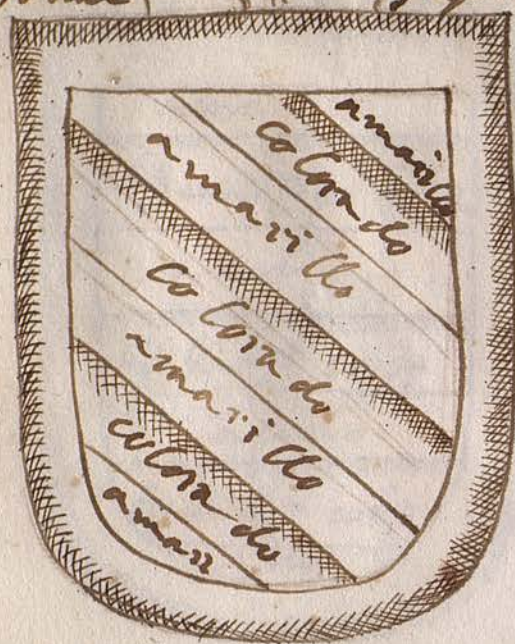 amarillo
colorado
amarillo
colorado
amarillo
colorado
amari